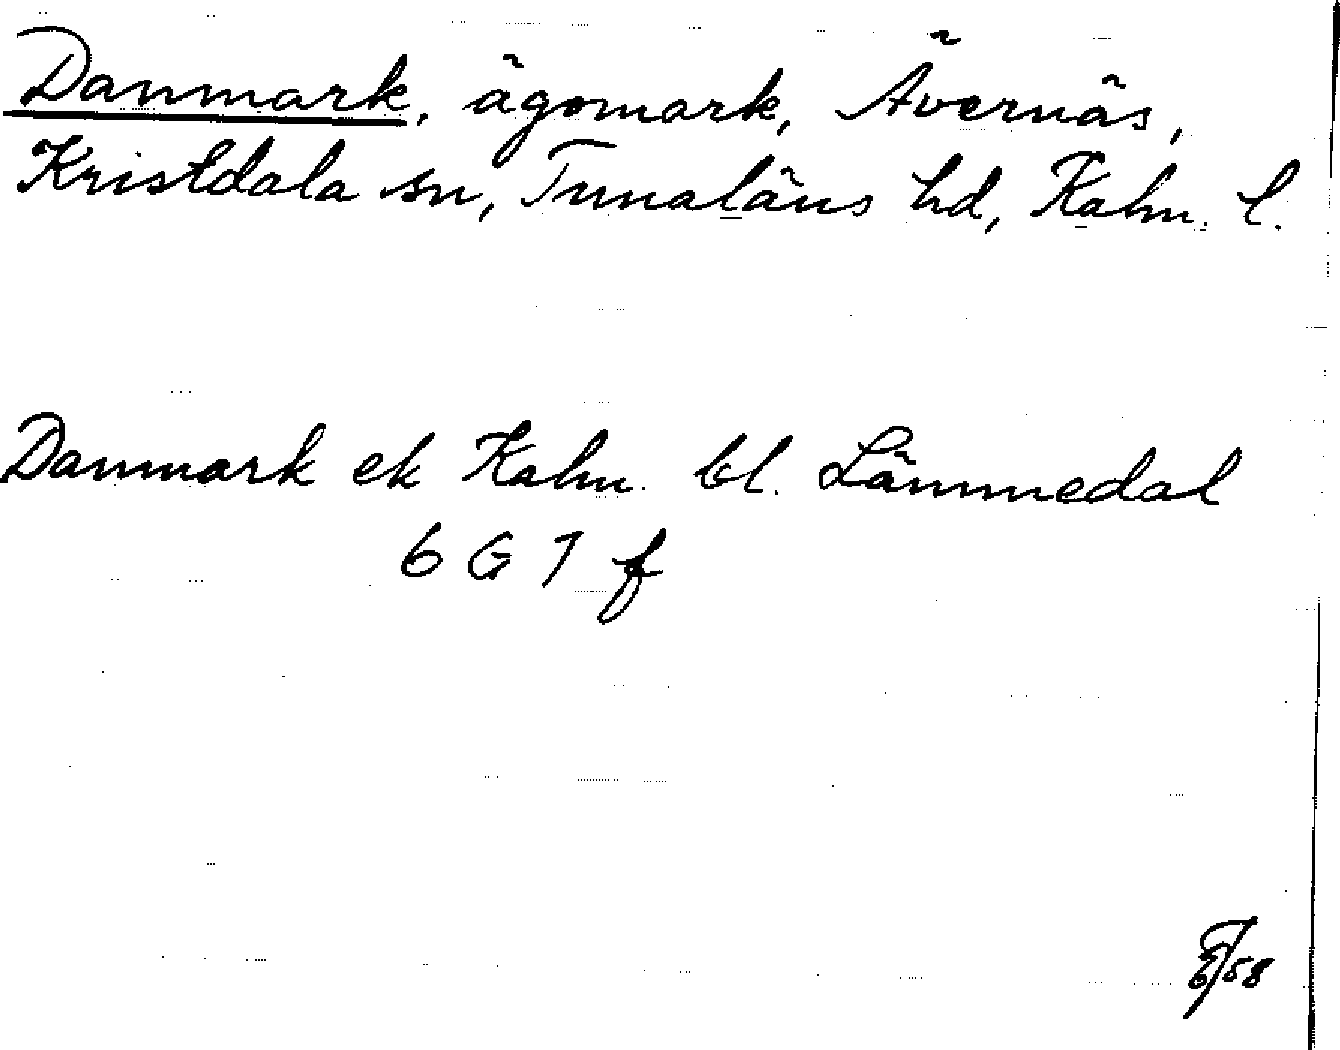 Danmark, ägomark,Ävernäs,
Kristdala sn, Tunaläns hd, Kalm. l.
Danmark ek Kalm. bl. Lämmedal
6 G 7 f
58